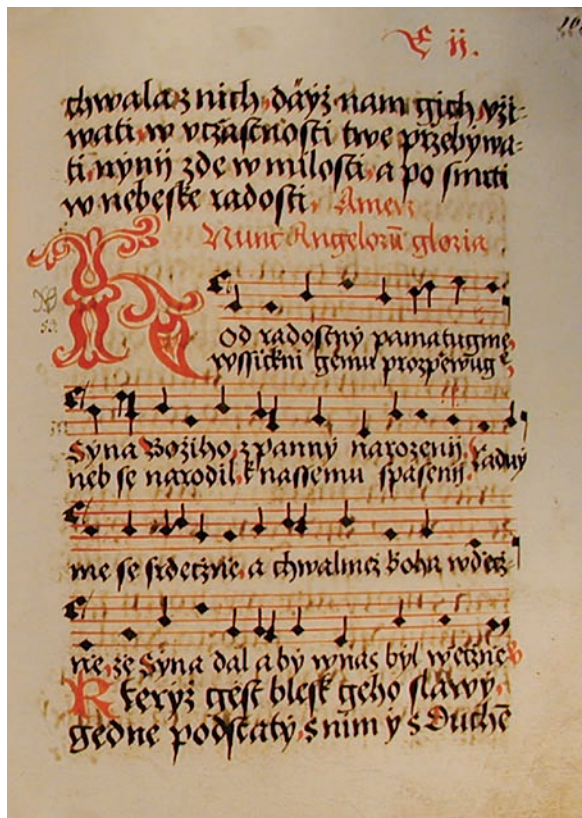 E ij.
chwala z nich, dayž nam gich vži-
wati, w vczastnosti twe przebywa-
ti, nynij zde w milosti, a po smrti
w nebeske radosti, Amen
Nunc Angelorū gloria
Hod radostny pamatugme,
wssickni gemu prozpěwugē,
Syna Božiho, z panny narozenij, Raduy
neb se narodil, k nassemu spaseni,
me se srdečzně, a chwalmež Boha wděcz-
ně, že Syna dal aby w nas byl wěčzně
Kteryž gest blesk geho slawy,
gedne podstaty, s nim y s Duchē